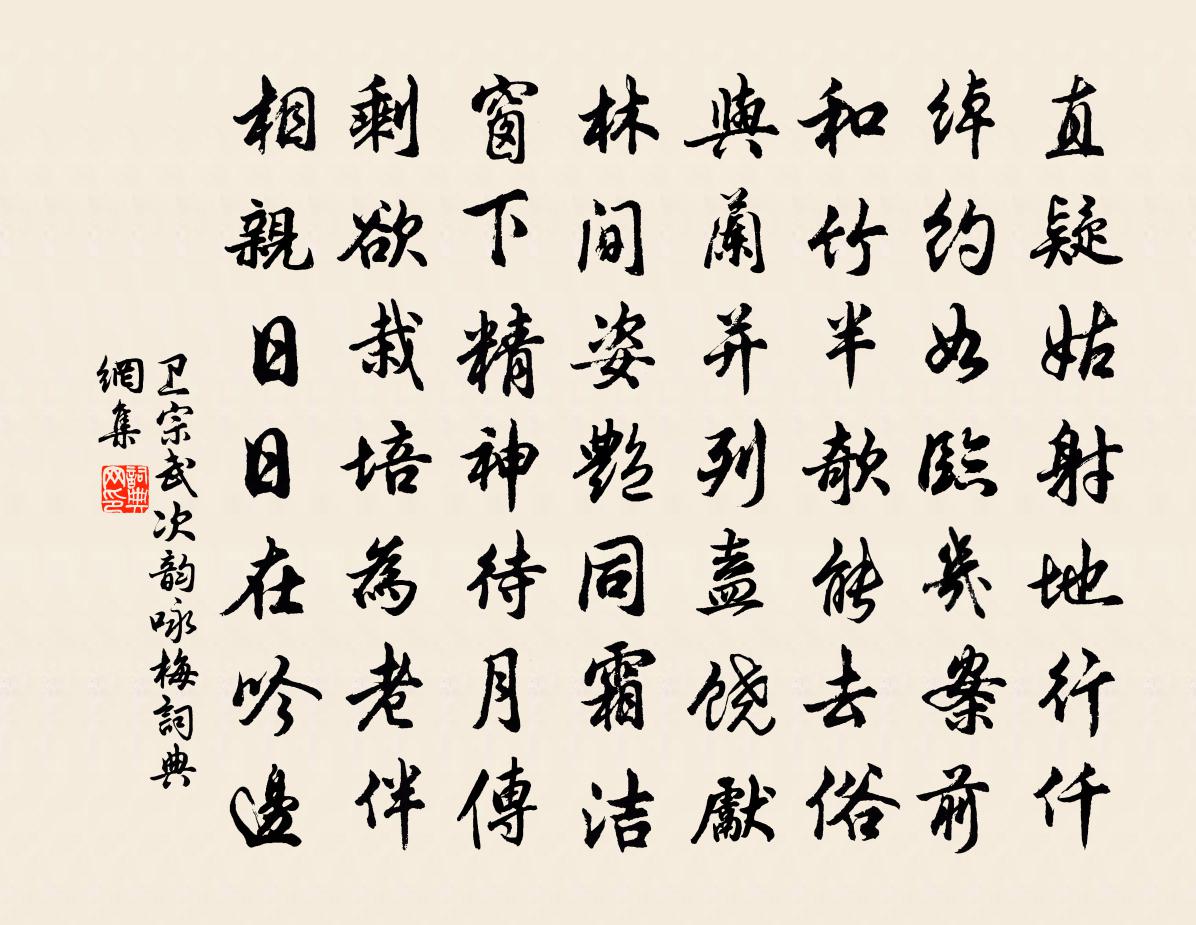 直疑姑射地行仟
綽約如臨幾案前
和竹半欹能去俗
與蘭并列盍饶獻
林間姿艷同霜洁
窗下精神待月傳
剩欲栽培為老伴
相親日日在吟邊
卫宗武次韵咏梅詞典
網集
詞典
网印